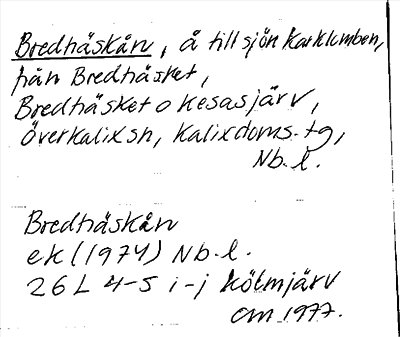 Bredträskån, å till sjön Karklomben,
från Bredträsket,
Bredträsket o Kesasjärv,
Överkalix sn, Kalixdoms. tg,
Nb. l.
Bredträskån
ek (1974) Nb. l.
26 L 4-5 i-j Kölmjärv
CM 1977.